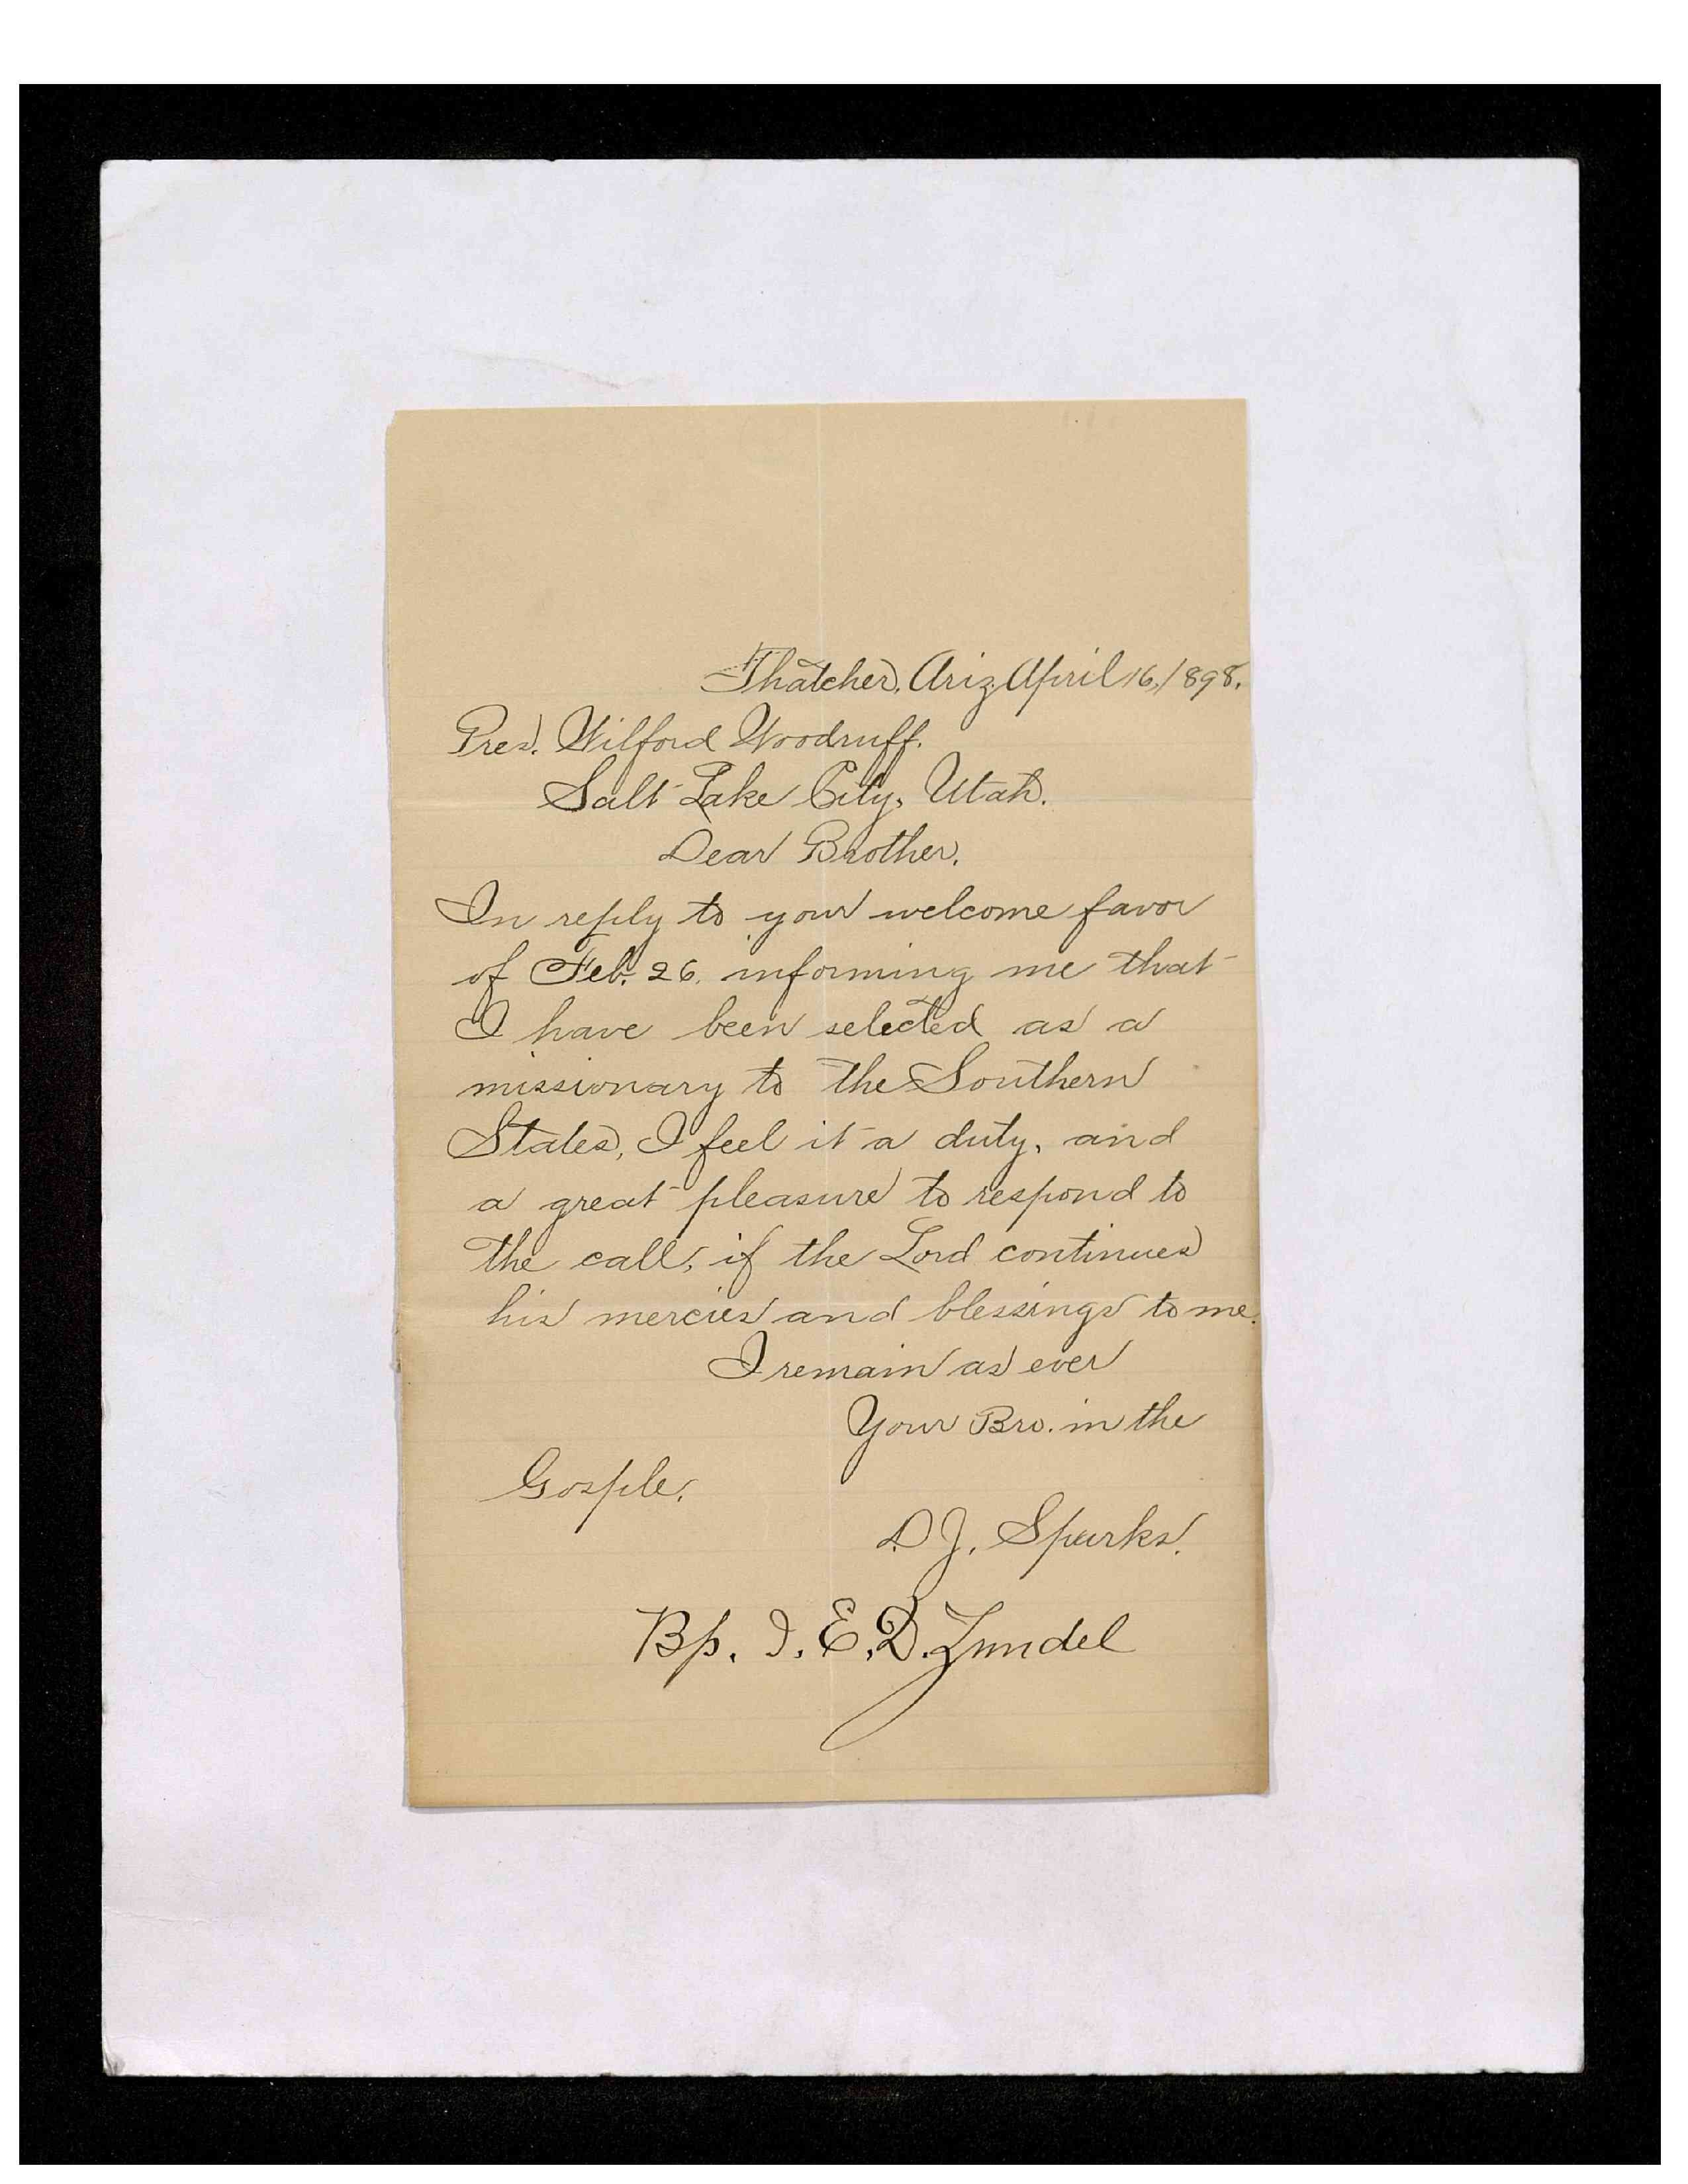 Thatcher, Ariz. April 16, 1898.
Pres. Wilford Woodruff.
Salt Lake City, Utah.
Dear Brother.
In reply to your welcome favor
of Feb. 26. informing me that
I have been selected as a
missionary to the Southern
States, I feel it a duty, and
a great pleasure to respond to
the call, if the Lord continues
his mercies and blessings to me.
I remain as ever
Your Bro. in the
Gosple.
D. J. Sparks.
Bp. I. E. D. Zundel